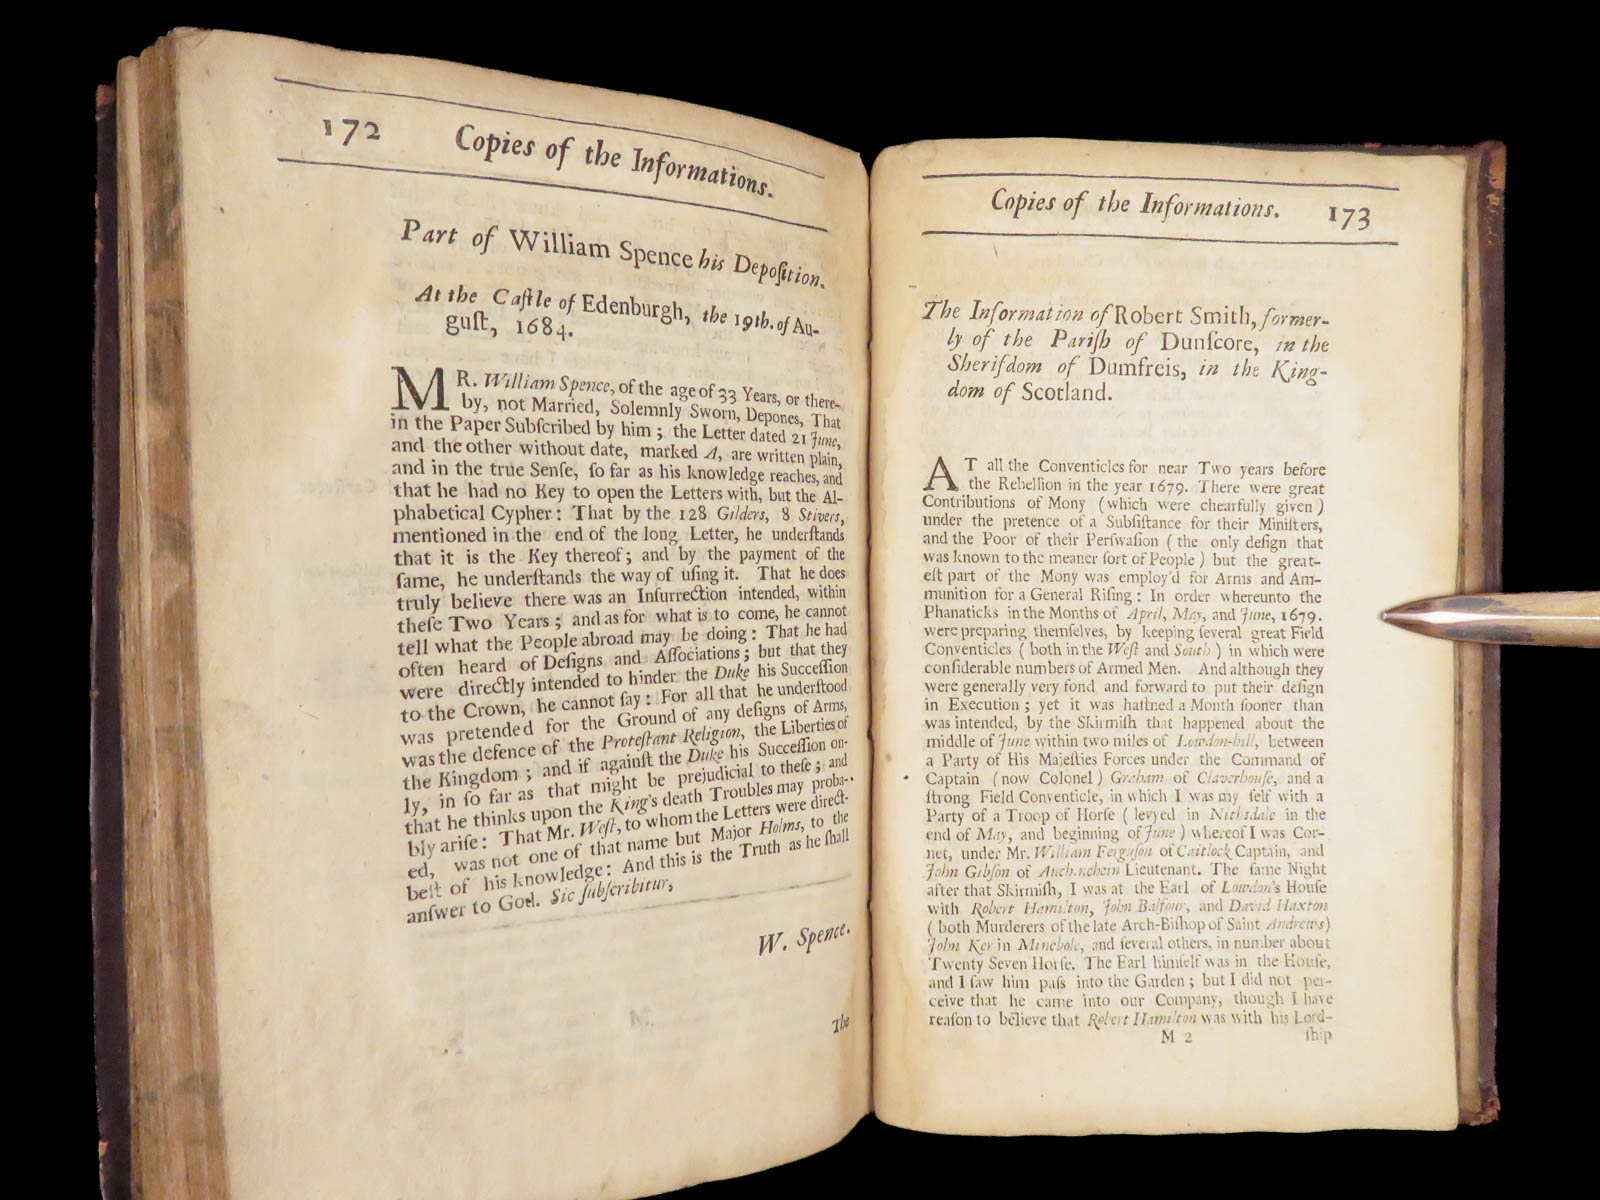 172 Copies of the Informations.
Part of William Spence his Depoſition.
At the Caſtle of Edenburgh, the 19th. of Au-
guſt, 1684.
MR. William Spence, of the age of 33 Years, or there-
by, not Married, Solemnly Sworn, Depones, That
in the Paper Subſcribed by him; the Letter dated 21 June,
and the other without date, marked A, are written plain,
and in the true Senſe, ſo far as his knowledge reaches, and
that he had no Key to open the Letters with, but the Al-
phabetical Cypher: That by the 128 Gilders, 8 Stivers,
mentioned in the end of the long Letter, he underſtands
that it is the Key thereof; and by the payment of the
ſame, he underſtands the way of uſing it. That he does
truly believe there was an Inſurrection intended, within
theſe Two Years; and as for what is to come, he cannot
tell what the People abroad may be doing: That he had
often heard of Deſigns and Aſſociations; but that they
were directly intended to hinder the Duke his Succeſſion
to the Crown, he cannot ſay: For all that he underſtood
was pretended for the Ground of any deſigns of Arms,
was the defence of the Proteſtant Religion, the Liberties of
the Kingdom; and if againſt the Duke his Succeſſion on-
ly, in ſo far as that might be prejudicial to theſe; and
that he thinks upon the King's death Troubles may proba-
bly ariſe: That Mr. Weſt, to whom the Letters were direct-
ed, was not one of that name but Major Holms, to the
beſt of his knowledge: And this is the Truth as he ſhall
anſwer to God. Sic ſubſcribitur,
W. Spence.
The
Copies of the Informations. 173
The Information of Robert Smith, former-
ly of the Pariſh of Dunſcore, in the
Sherifdom of Dumfreis, in the King-
dom of Scotland.
AT all the Conventicles for near Two years before
the Rebellion in the year 1679. There were great
Contributions of Mony (which were chearfully given)
under the pretence of a Subſiſtance for their Miniſters,
and the Poor of their Perſwaſion (the only deſign that
was known to the meaner ſort of People) but the great-
eſt part of the Mony was employ'd for Arms and Am-
munition for a General Riſing: In order whereunto the
Phanaticks in the Months of April, May, and June, 1679.
were preparing themſelves, by keeping ſeveral great Field
Conventicles (both in the Weſt and South) in which were
conſiderable numbers of Armed Men. And although they
were generally very fond and forward to put their deſign
in Execution; yet it was haſtned a Month ſooner than
was intended, by the Skirmiſh that happened about the
middle of June within two miles of Lowdon-hill, between
a Party of His Majeſties Forces under the Command of
Captain (now Colonel) Graham of Claverhouſe, and a
ſtrong Field Conventicle, in which I was my ſelf with a
Party of a Troop of Horſe (levyed in Nithsdale in the
end of May, and beginning of June) whereof I was Cor-
net, under Mr. William Ferguſon of Caitlock Captain, and
John Gibſon of Auchinchein Lieutenant. The ſame Night
after that Skirmiſh, I was at the Earl of Lowdon's Houſe
with Robert Hamilton, John Balfour, and David Haxton
(both Murderers of the late Arch-Biſhop of Saint Andrews)
John Ker in Minehole, and ſeveral others, in number about
Twenty Seven Horſe. The Earl himſelf was in the Houſe,
and I ſaw him paſs into the Garden; but I did not per-
ceive that he came into our Company, though I have
reaſon to believe that Robert Hamilton was with his Lord-
M 2 ſhip